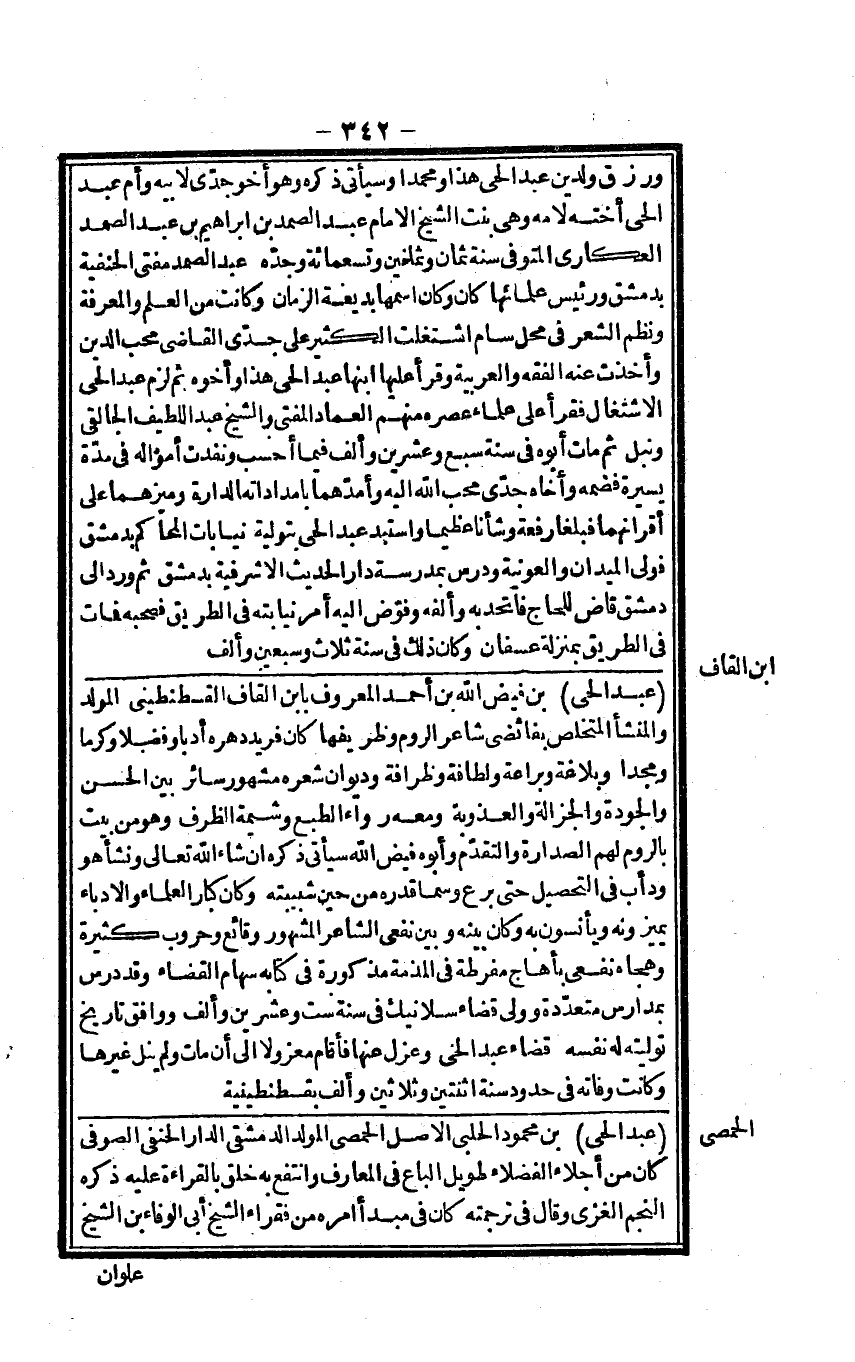 - ٣٤٢ -
ورزق ولدين عبدالحى هذا ومحمدا وسيأتى ذكره وهو أخو جدّى لابيه وأم عبد
الحى أخته لامه وهى بنت الشيخ الامام عبدالصمد بن ابراهيم بن عبدالصمد
العكارى المتوفى سنة ثمان وثمانين وتسعمائة وجدّه عبدالصمد مفتى الحنفية
بدمشق ورئيس علمائها كان وكان اسمها بديعة الزمان وكانت من العلم والمعرفة
ونظم الشعر فى محل سام اشتغلت الكثير على جدّى القاضى محب الدين
وأخذت عنه الفقه والعربية وقرأ عليها ابنها عبدالحى هذا وأخوه ثم لزم عبدالحى
الاشتغال فقرأ على علماء عصره منهم العماد المفتى والشيخ عبداللطيف الجالقى
ونبل ثم مات أبوه فى سنة سبع وعشرين وألف فيما أحسب ونفدت أمواله فى مدّة
يسيرة فضمه وأخاه جدّى محب الله اليه وأمدّهما بامداداته الدارة وميزهما على
أقرانهما فبلغا رفعة وشأنا عظيما واستبد عبدالحى بتولية نيابات المحاكم بدمشق
فولى الميدان والعونية ودرس بمدرسة دار الحديث الاشرفية بدمشق ثم ورد الى
دمشق قاض للحاج فاتحد به وألفه وفوّض اليه أمر نيابته فى الطريق فصحبه فمات
فى الطريق بمنزلة عسفان وكان ذلك فى سنة ثلاث وسبعين وألف
ابن القاف
(عبدالحى) بن فيض الله بن أحمد المعروف بابن القاف القسطنطينى المولد
والمنشأ المتخلص بفائضى شاعر الروم وظريفها كان فريد دهره أدبا وفضلا وكرما
ومجدا وبلاغة وبراعة ولطافة وظرافة وديوان شعره مشهور سائر بين الحسن
والجودة والجزالة والعذوبة ومعه رواء الطبع وشيمة الظرف وهو من بيت
بالروم لهم الصدارة والتقدّم وأبوه فيض الله سيأتى ذكره ان شاء الله تعالى ونشأ هو
ودأب فى التحصيل حتى برع وسما قدره من حين شبيبته وكان كبار العلماء والادباء
يميزونه ويأنسون به وكان بينه وبين نفعى الشاعر المشهور وقائع وحروب كثيرة
وهجاه نفعى بأهاج مفرطة فى المذمة مذكورة فى كتابه سهام القضاء وقد درس
بمدارس متعدّدة وولى قضاء سلانيك فى سنة ست وعشرين وألف ووافق تاريخ
توليته له نفسه قضاء عبدالحى وعزل عنها فأقام معزولا الى أن مات ولم ينل غيرها
وكانت وفاته فى حدود سنة اثنتين وثلاثين وألف بقسطنطينية
الحمصى
(عبدالحى) بن محمود الحلبى الاصل الحمصى المولد الدمشقى الدار الحنفى الصوفى
كان من أجلاء الفضلاء طويل الباع فى المعارف وانتفع به خلق بالقراءة عليه ذكره
النجم الغزى وقال فى ترجمته كان فى مبدأ امره من فقراء الشيخ أبى الوفاء بن الشيخ
علوان